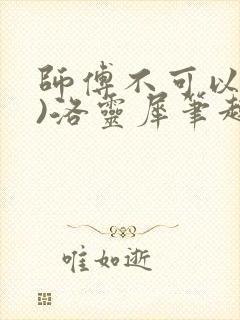 師傅不可以
)洛靈犀筆趣
唯如逝